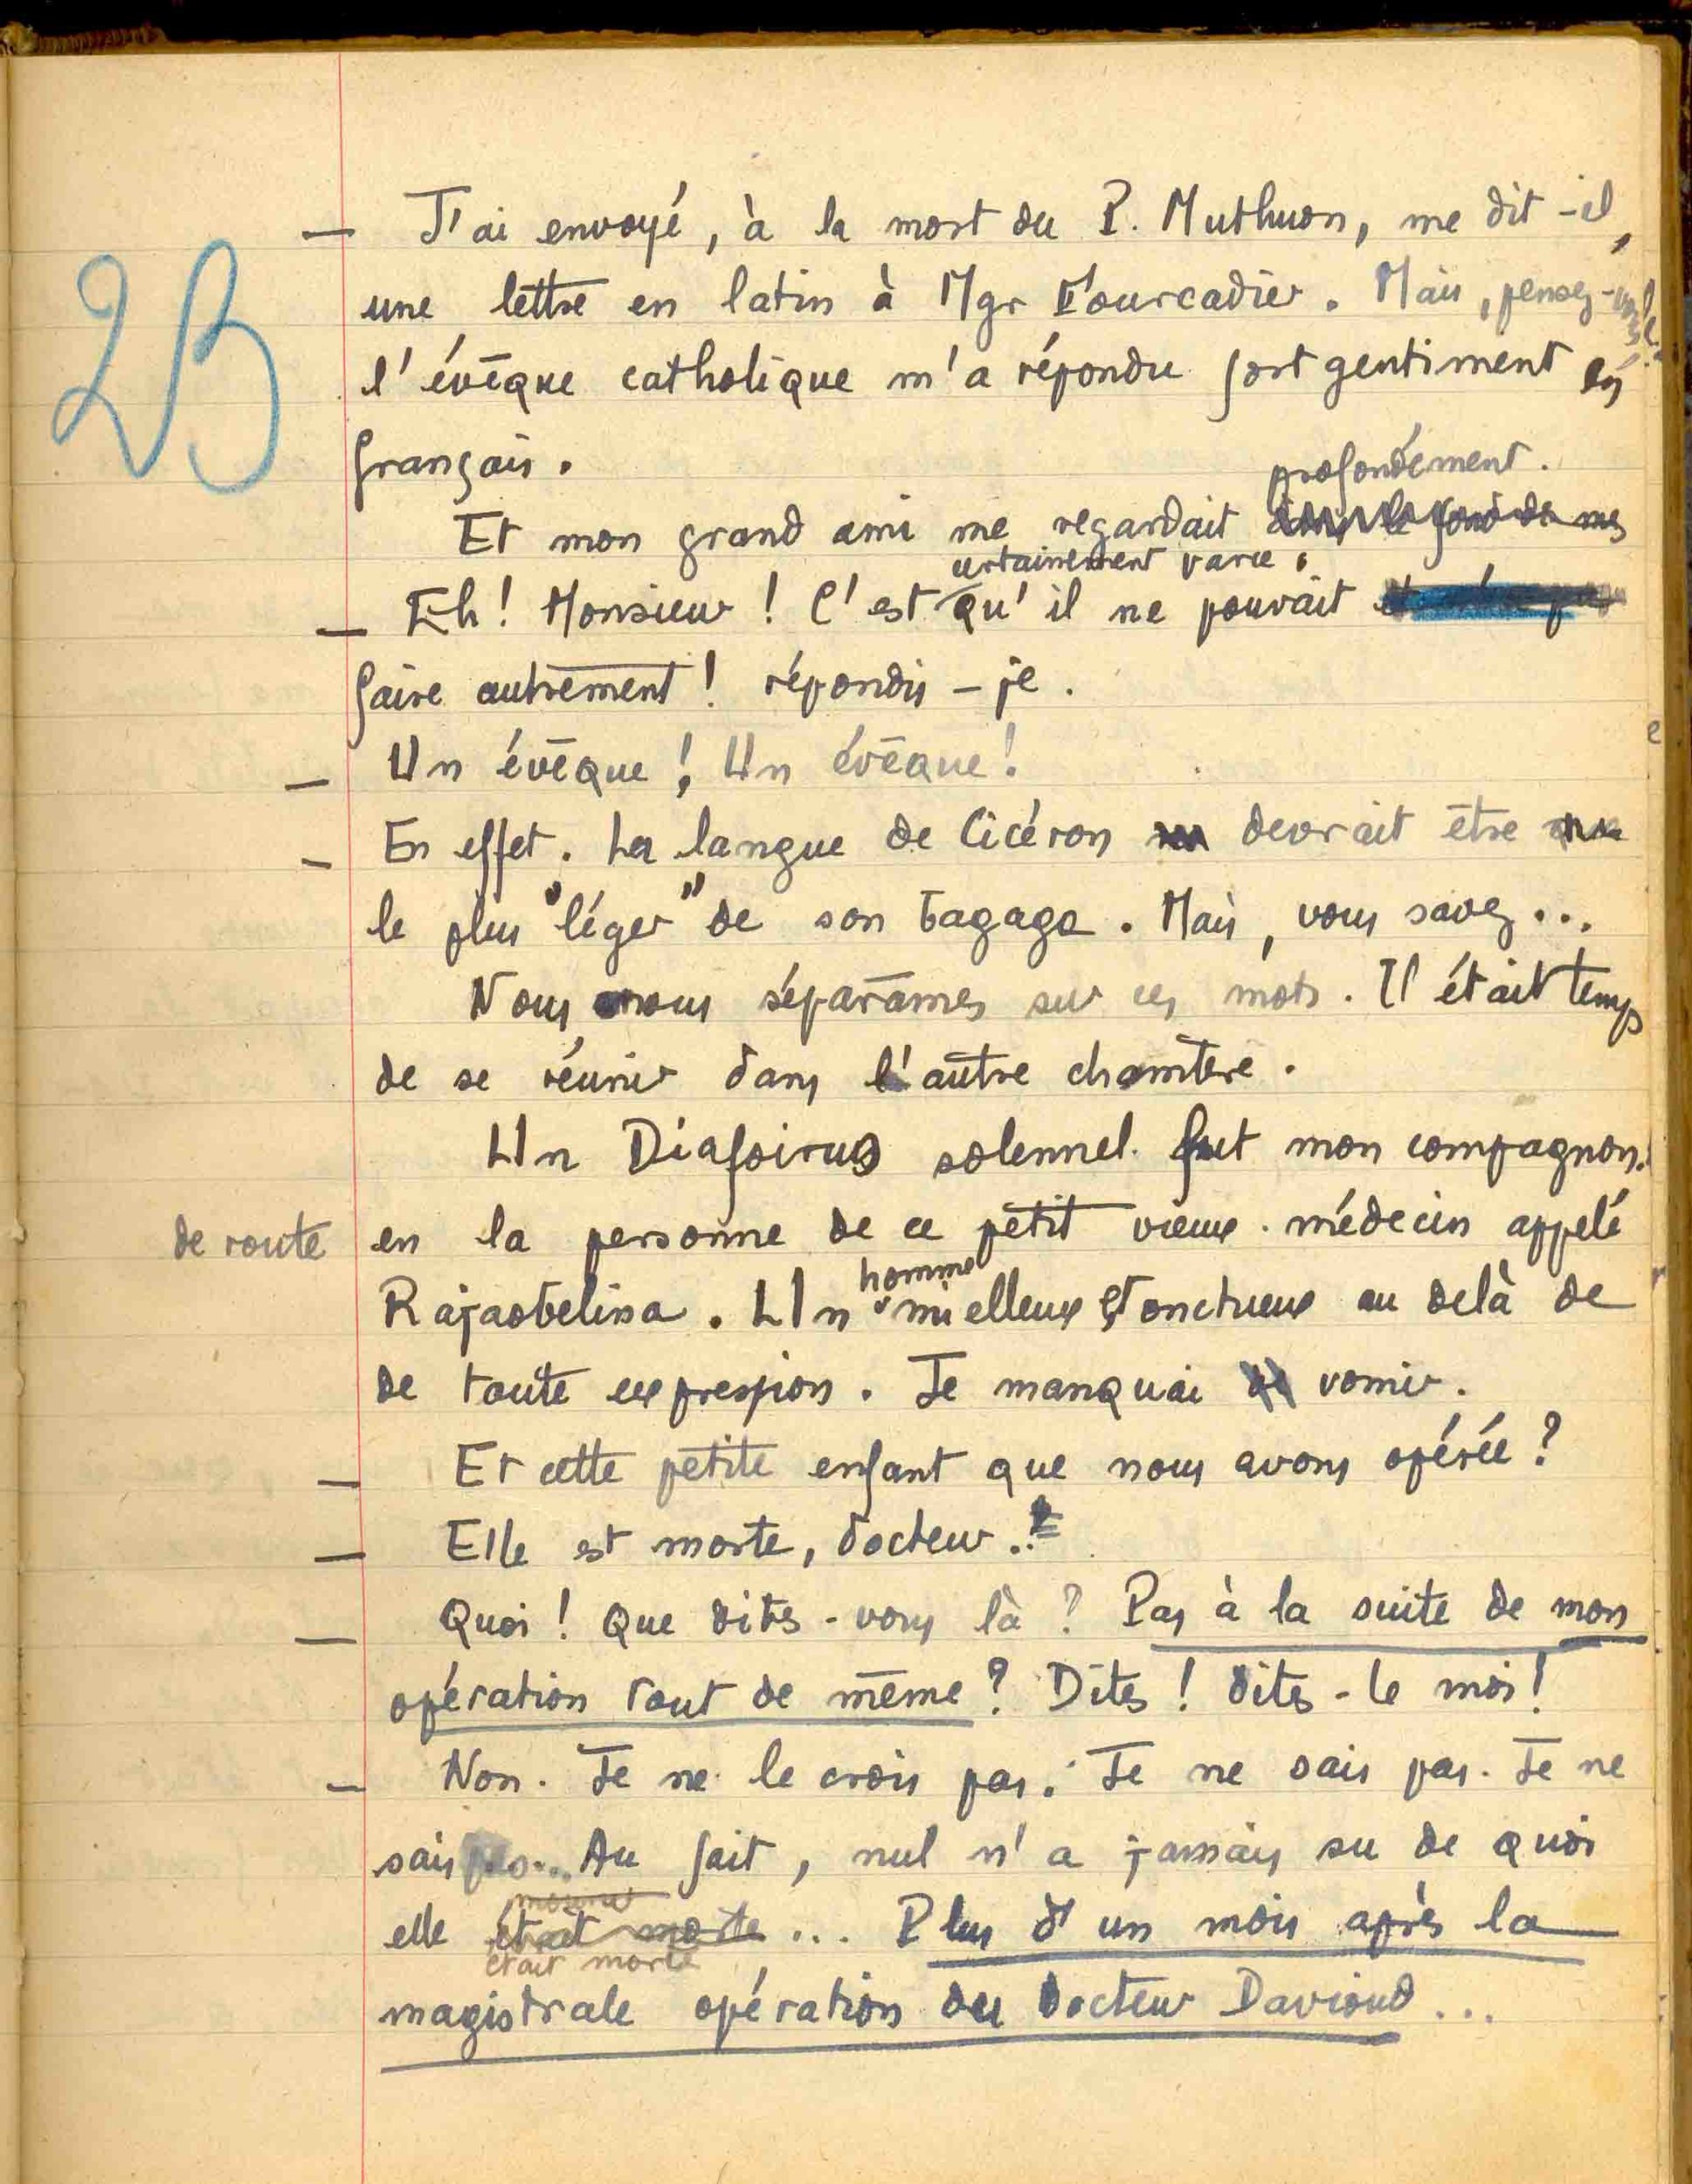 2B
— J'ai envoyé, à la mort du P. Muthuon, me dit-il,
une lettre en latin à Mgr Fourcadier. Mais, pensez-
l'évêque catholique m'a répondu fort gentiment en
français.
profondément.
Et mon grand ami me regardait dans le fond de mes
certainement parce
— Eh! Monsieur! C'est qu'il ne pouvait
faire autrement! répondis-je.
— Un évêque! Un évêque!
— En effet. La langue de Cicéron devrait être
le plus "léger" de son bagage. Mais, vous savez...
Nous nous séparâmes sur ces mots. Il était temps
de se réunir dans l'autre chambre.
Un Diafoirus solennel fut mon compagnon
de route en la personne de ce petit vieux médecin appelé
homme
Rajaobelina. Un mielleux et onctueux au delà de
de toute expression. Je manquai de vomir.
— Et cette petite enfant que nous avons opérée?
— Elle est morte, docteur..
— Quoi! Que dites-vous là? Pas à la suite de mon
opération tout de même? Dites! dites-le moi!
— Non. Je ne le crois pas. Je ne sais pas. Je ne
sais pas... Au fait, nul n'a jamais su de quoi
elle était morte... Plus d'un mois après la
était morte
magistrale opération du Docteur Davioud...